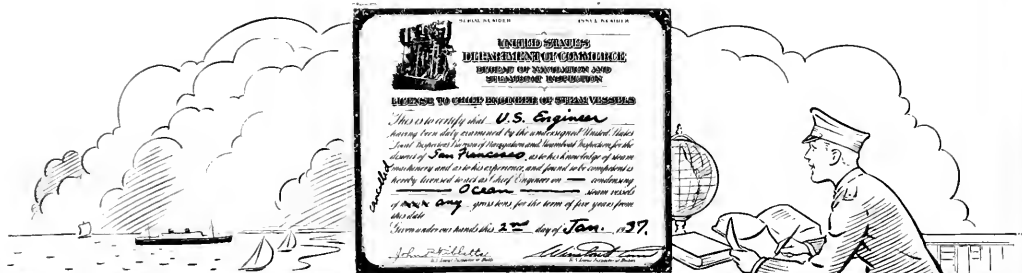 SERIAL NUMBER ISSUE NUMBER
UNITED STATES
DEPARTMENT OF COMMERCE
BUREAU OF NAVIGATION AND
STEAMBOAT INSPECTION
LICENSE TO CHIEF ENGINEER OF STEAM VESSELS
This is to certify that U.S. Engineer
having been duly examined by the undersigned United States
Local Inspectors Bureau of Navigation and Steamboat Inspection, for the
district of San Francisco, as to his knowledge of steam
machinery and as to his experience, and found to be competent is
hereby licensed to act as Chief Engineer on — condensing
Ocean steam vessels
of xxx any gross tons, for the term of five years from
this date
Given under our hands this 2nd day of Jan. 1937.
cancelled
John